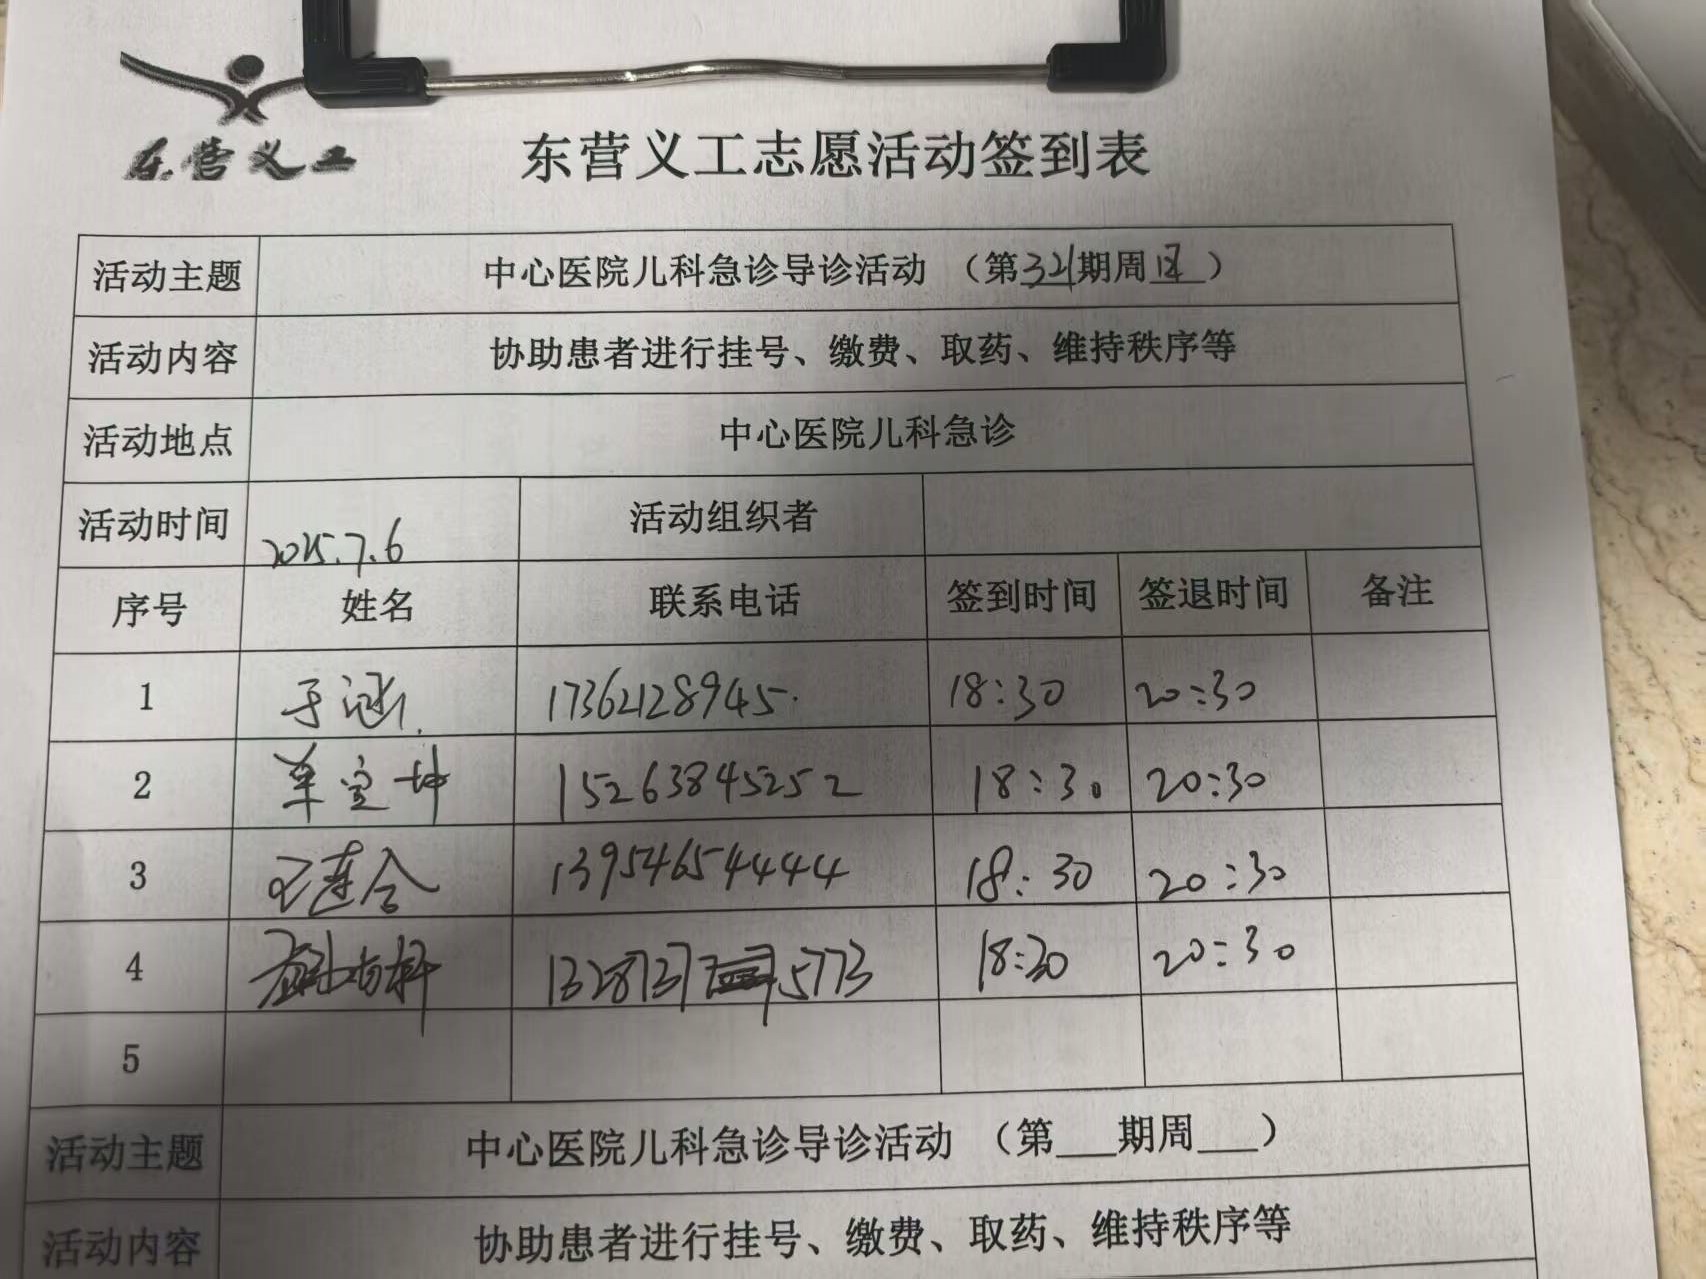 东营义工
东营义工志愿活动签到表
活动主题 中心医院儿科急诊导诊活动 （第321期周日）
活动内容 协助患者进行挂号、缴费、取药、维持秩序等
活动地点 中心医院儿科急诊
活动时间 2025.7.6 活动组织者
序号 姓名 联系电话 签到时间 签退时间 备注
1 于涵 17362128945. 18:30 20:30
2 单宝坤 15263845252 18:30 20:30
3 王莲合 13954654444 18:30 20:30
4 18:30 20:30
5
活动主题 中心医院儿科急诊导诊活动 （第___期周___）
活动内容 协助患者进行挂号、缴费、取药、维持秩序等